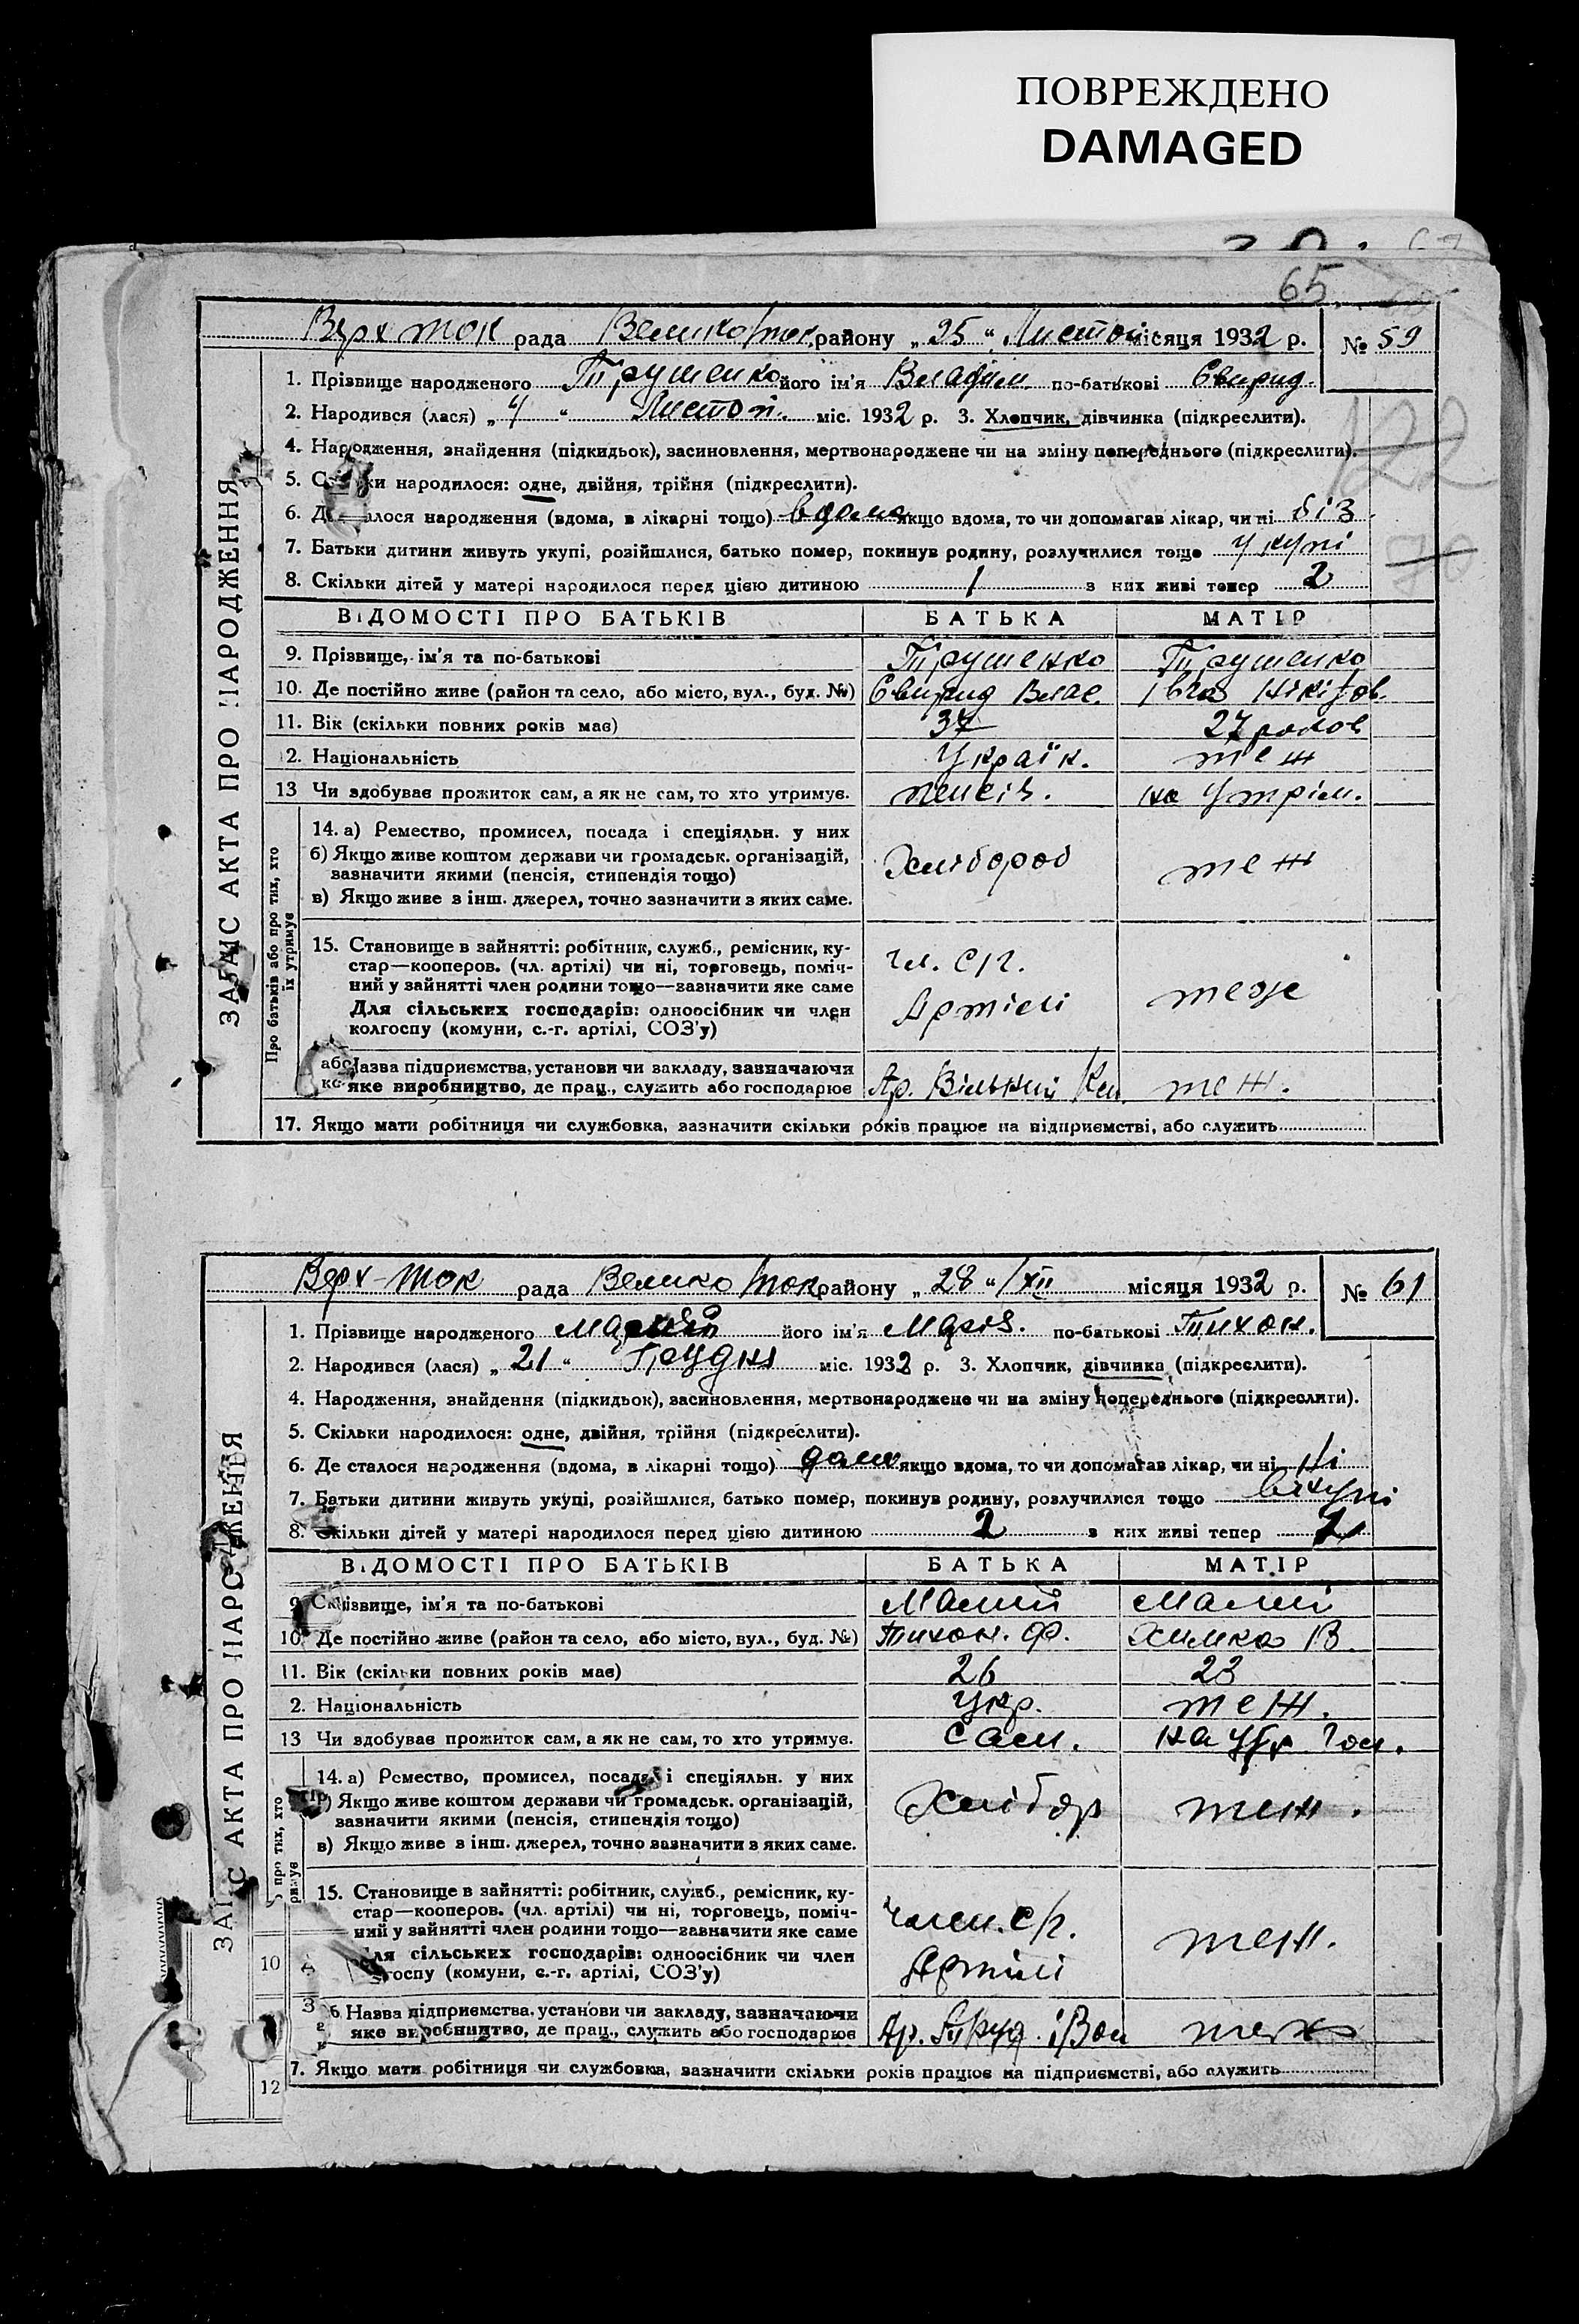 ПОВРЕЖДЕНО
DAMAGED
65
Верх ток рада Великоток району „25“ Листоп місяця 1932 р. № 59
ЗАПИС АКТА ПРО НАРОДЖЕННЯ
1. Прізвище народженого Трушенко його ім'я Владім. по-батькові Свирид.
2. Народився (лася) „4“ Листоп. міс. 1932 р. 3. Хлопчик, дівчинка (підкреслити).
122
4. Народження, знайдення (підкидьок), засиновлення, мертвонароджене чи на зміну попереднього (підкреслити).
5. ки народилося: одне, двійня, трійня (підкреслити).
6. алося народження (вдома, в лікарні тощо) вдома якщо вдома, то чи допомагав лікар, чи ні біз
70
7. Батьки дитини живуть укупі, розійшлися, батько помер, покинув родину, розлучилися тощо укупі
8. Скільки дітей у матері народилося перед цією дитиною 1 з них живі тепер 2
ВІДОМОСТІ ПРО БАТЬКІВ БАТЬКА МАТІР
9. Прізвище, ім'я та по-батькові Трушенко Трушенко
10. Де постійно живе (район та село, або місто, вул., буд. №) Свирид Влас. Івга Нікітов.
11. Вік (скільки повних років має) 37 27 роков
2. Національність Україн. теж
13 Чи здобуває прожиток сам, а як не сам, то хто утримує. пенсія. на утрім.
Про батьків або про тих, хто їх утримує
14. а) Ремество, промисел, посада і спеціяльн. у них
б) Якщо живе коштом держави чи громадськ. організацій, Хлібороб теж
зазначити якими (пенсія, стипендія тощо)
в) Якщо живе з інш. джерел, точно зазначити з яких саме.
15. Становище в зайнятті: робітник, служб., ремісник, ку-
стар—кооперов. (чл. артілі) чи ні, торговець, поміч- чл. с/г.
ний у зайнятті член родини тощо—зазначити яке саме
Для сільських господарів: одноосібник чи член Артілі теже
колгоспу (комуни, с.-г. артілі, СОЗ'у)
Назва підприємства, установи чи закладу, зазначаючи
яке виробництво, де прац., служить або господарює Ар. Вільний теж.
17. Якщо мати робітниця чи службовка, зазначити скільки років працює на підприємстві, або служить
Верх-ток рада Великоток району „28“ /XII місяця 1932 р. № 61
ЗАПИС АКТА ПРО НАРОДЖЕННЯ
1. Прізвище народженого його ім'я Марія. по-батькові Тихон.
2. Народився (лася) „21“ Грудня міс. 1932 р. 3. Хлопчик, дівчинка (підкреслити).
4. Народження, знайдення (підкидьок), засиновлення, мертвонароджене чи на зміну попереднього (підкреслити).
5. Скільки народилося: одне, двійня, трійня (підкреслити).
6. Де сталося народження (вдома, в лікарні тощо) дома якщо вдома, то чи допомагав лікар, чи ні Ні
7. Батьки дитини живуть укупі, розійшлися, батько помер, покинув родину, розлучилися тощо вкупі
8. Скільки дітей у матері народилося перед цією дитиною 2 з них живі тепер
ВІДОМОСТІ ПРО БАТЬКІВ БАТЬКА МАТІР
9 ізвище, ім'я та по-батькові Малий Малий
10. Де постійно живе (район та село, або місто, вул., буд. №) Тихон. Ф. Химка В
11. Вік (скільки повних років має) 26 23
2. Національність Укр. теж.
13 Чи здобуває прожиток сам, а як не сам, то хто утримує. Сам. на
про тих, хто
14. а) Ремество, промисел, посада і спеціяльн. у них
) Якщо живе коштом держави чи громадськ. організацій, Хлібор теж.
зазначити якими (пенсія, стипендія тощо)
в) Якщо живе з інш. джерел, точно зазначити з яких саме.
15. Становище в зайнятті: робітник, служб., ремісник, ку-
стар—кооперов. (чл. артілі) чи ні, торговець, поміч- член. с/г.
ний у зайнятті член родини тощо—зазначити яке саме теж.
10 ля сільських господарів: одноосібник чи член
госпу (комуни, с.-г. артілі, СОЗ'у) Артілі
6 Назва підприємства, установи чи закладу, зазначаючи
яке виробництво, де прац., служить або господарює Ар. Труд. теж
7. Якщо мати робітниця чи службовка, зазначити скільки років працює на підприємстві, або служить
12